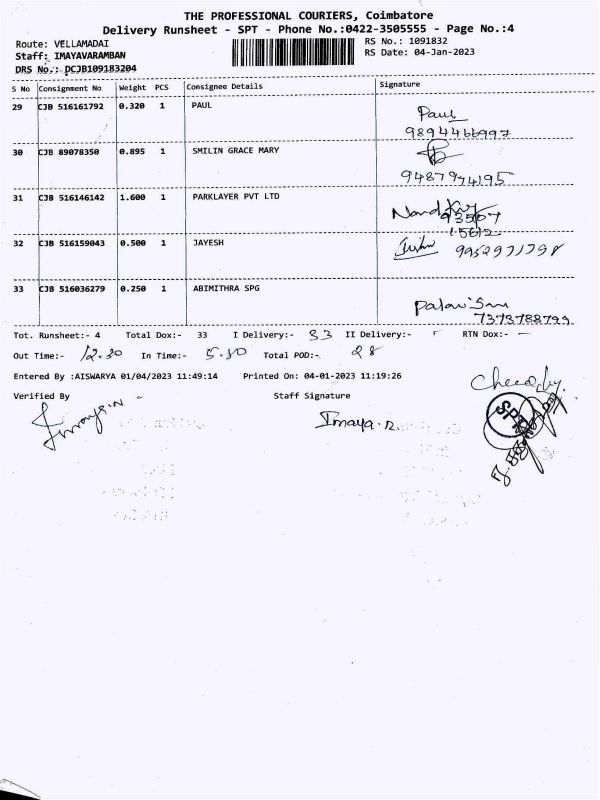 THE PROFESSIONAL COURIERS, Coimbatore
Delivery Runsheet - SPT - Phone No.:0422-3505555 - Page No.:4
Route: VELLAMADAI
RS No.: 1091832
Staff: IMAYAVARAMBAN
RS Date: 04-Jan-2023
DRS No.: DCJB109183204
S No Consignment No Weight PCS Consignee Details Signature
29 CJB 516161792 0.320 1 PAUL Paul
9894466997
30 CJB 89078350 0.895 1 SMILIN GRACE MARY
9487974195
31 CJB 516146142 1.600 1 PARKLAYER PVT LTD
93567
15612
32 CJB 516159043 0.500 1 JAYESH 9952971798
33 CJB 516036279 0.250 1 ABIMITHRA SPG
7373788799
Tot. Runsheet:- 4 Total Dox:- 33 I Delivery:- 33 II Delivery:- RTN Dox:- -
Out Time:- 12.30 In Time:- 5.30 Total POD:- 28
Entered By :AISWARYA 01/04/2023 11:49:14 Printed On: 04-01-2023 11:19:26
Verified By Staff Signature
Imaya.n
SPT